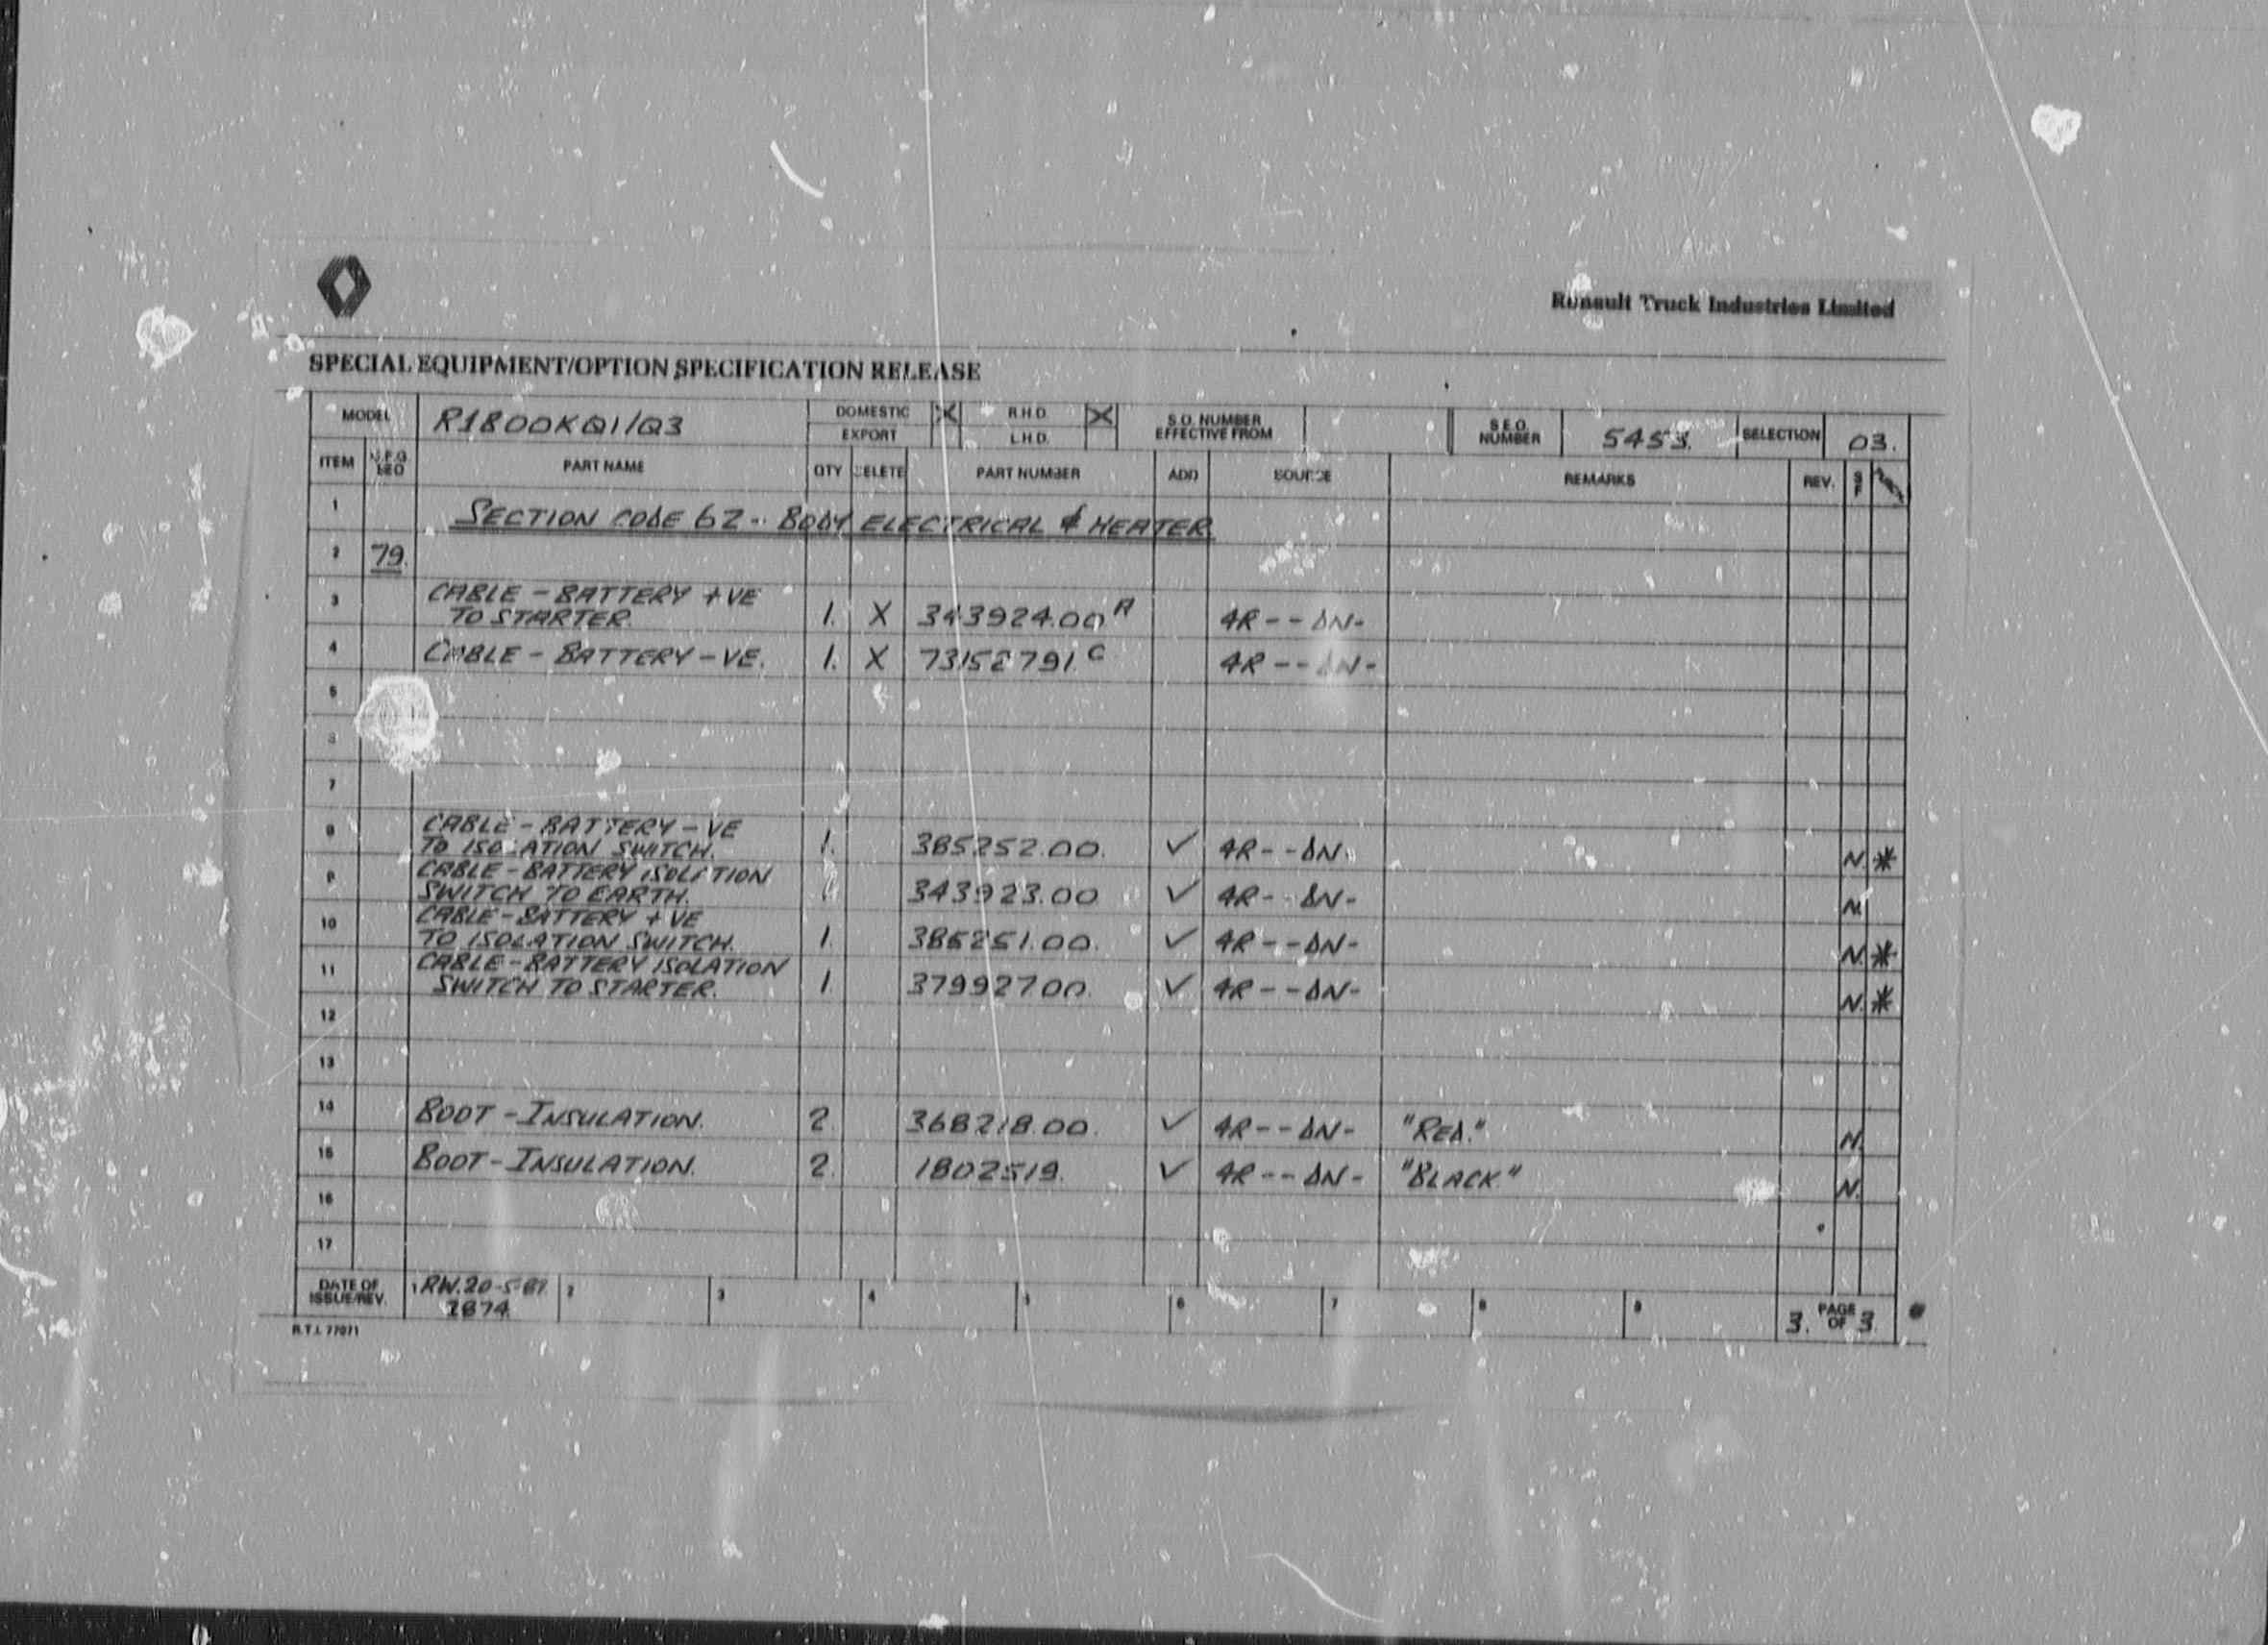 Renault Truck Industries Limited
SPECIAL EQUIPMENT/OPTION SPECIFICATION RELEASE
MODEL R1800KQ1/Q3 DOMESTIC X R.H.D. X S.O. NUMBER EFFECTIVE FROM S.E.O. NUMBER 5453. SELECTION 03.
EXPORT L.H.D.
ITEM PART NAME QTY DELETE PART NUMBER ADD SOURCE REMARKS REV. S F
1 SECTION CODE 62 - BODY ELECTRICAL & HEATER
2 79.
3 CABLE - BATTERY +VE
TO STARTER. 1. X 343924.00 A 4R--DN-
4 CABLE - BATTERY -VE. 1. X 73152791 C 4R--DN-
5
6
7
8 CABLE - BATTERY -VE
TO ISOLATION SWITCH. 1. 385252.00. ✓ 4R--DN. N. *
9 CABLE - BATTERY ISOLATION
SWITCH TO EARTH. 343923.00 ✓ 4R--DN- N.
10 CABLE - BATTERY +VE
TO ISOLATION SWITCH. 1. 385251.00. ✓ 4R--DN- N. *
11 CABLE - BATTERY ISOLATION
SWITCH TO STARTER. 1 37992700. ✓ 4R--DN- N. *
12
13
14 BOOT - INSULATION. 2. 368218.00. ✓ 4R--DN- "RED." N.
15 BOOT - INSULATION. 2. 1802519. ✓ 4R--DN- "BLACK" N.
16
17
DATE OF ISSUE/REV. 1 RW. 20-5-87. 2 3 4 5 6 7 8 9 3. PAGE OF 3.
2874.
R.T.I. 77071